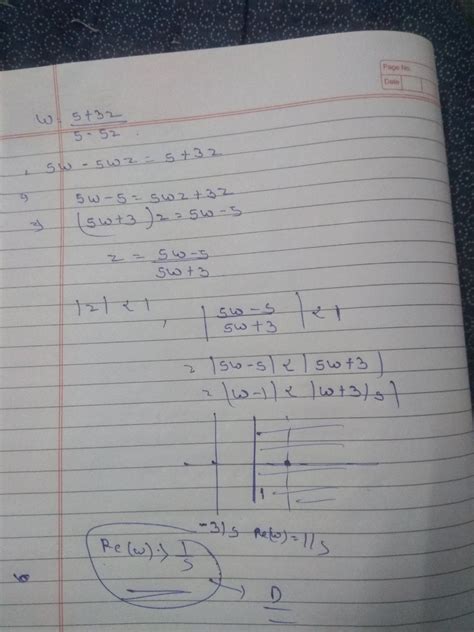 Page No.
Date
w = 5+3z / 5-5z
5w - 5wz = 5+3z
⇒ 5w-5 = 5wz+3z
⇒ (5w+3)z = 5w-5
z = 5w-5 / 5w+3
|z| < 1, |5w-5 / 5w+3| < 1
= |5w-5| < |5w+3|
= |w-1| < |w+3/5|
-3/5 Re(w) = 1/5
Re(w) > 1/5
→ D